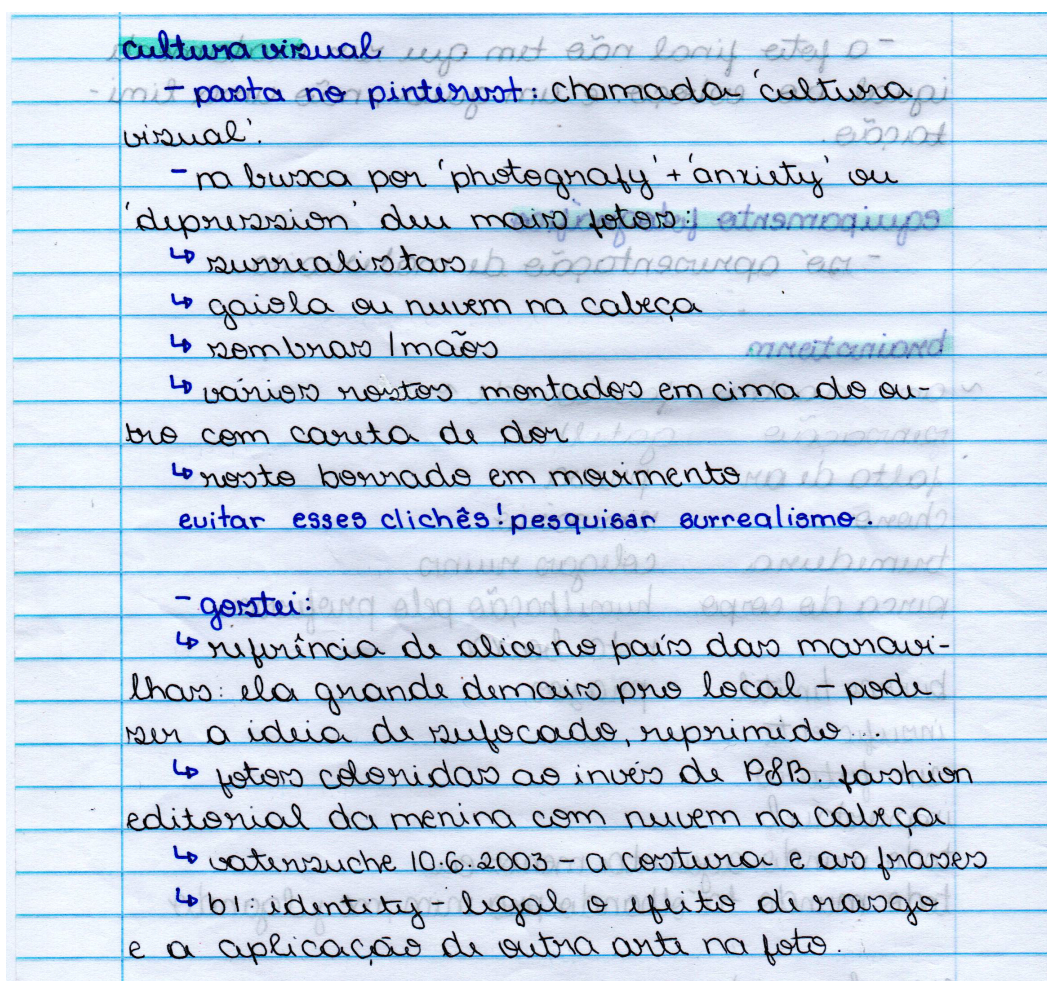 cultura visual
- pasta no pinterest: chamada 'cultura
visual'.
- na busca por 'photografy' + 'anxiety' ou
'depression' deu mais fotos:
↳ surrealistas
↳ gaiola ou nuvem na cabeça
↳ sombras / mãos
↳ vários rostos montados em cima do ou-
tro com careta de dor
↳ rosto borrado em movimento
evitar esses clichês! pesquisar surrealismo.
- gostei:
↳ referência de alice no país das maravi-
lhas: ela grande demais pro local - pode
ser a ideia de sufocado, reprimido...
↳ fotos coloridas ao invés de P&B. fashion
editorial da menina com nuvem na cabeça
↳ vatersuche 10.6.2003 - a costura e as frases
↳ b1: identity - legal o efeito de rasgo
e a aplicação de outra arte na foto.